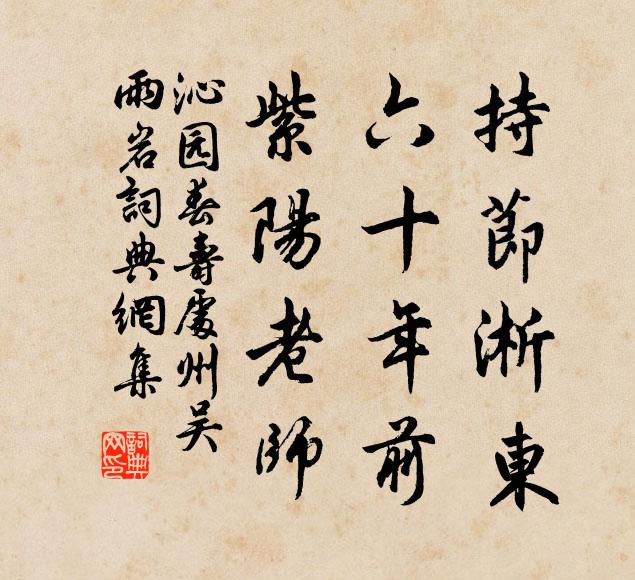 持節淅東
六十年前
紫陽老師
沁园春壽處州吴
雨岩詞典網集
詞典网印